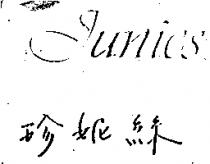 Junies
珍妮絲